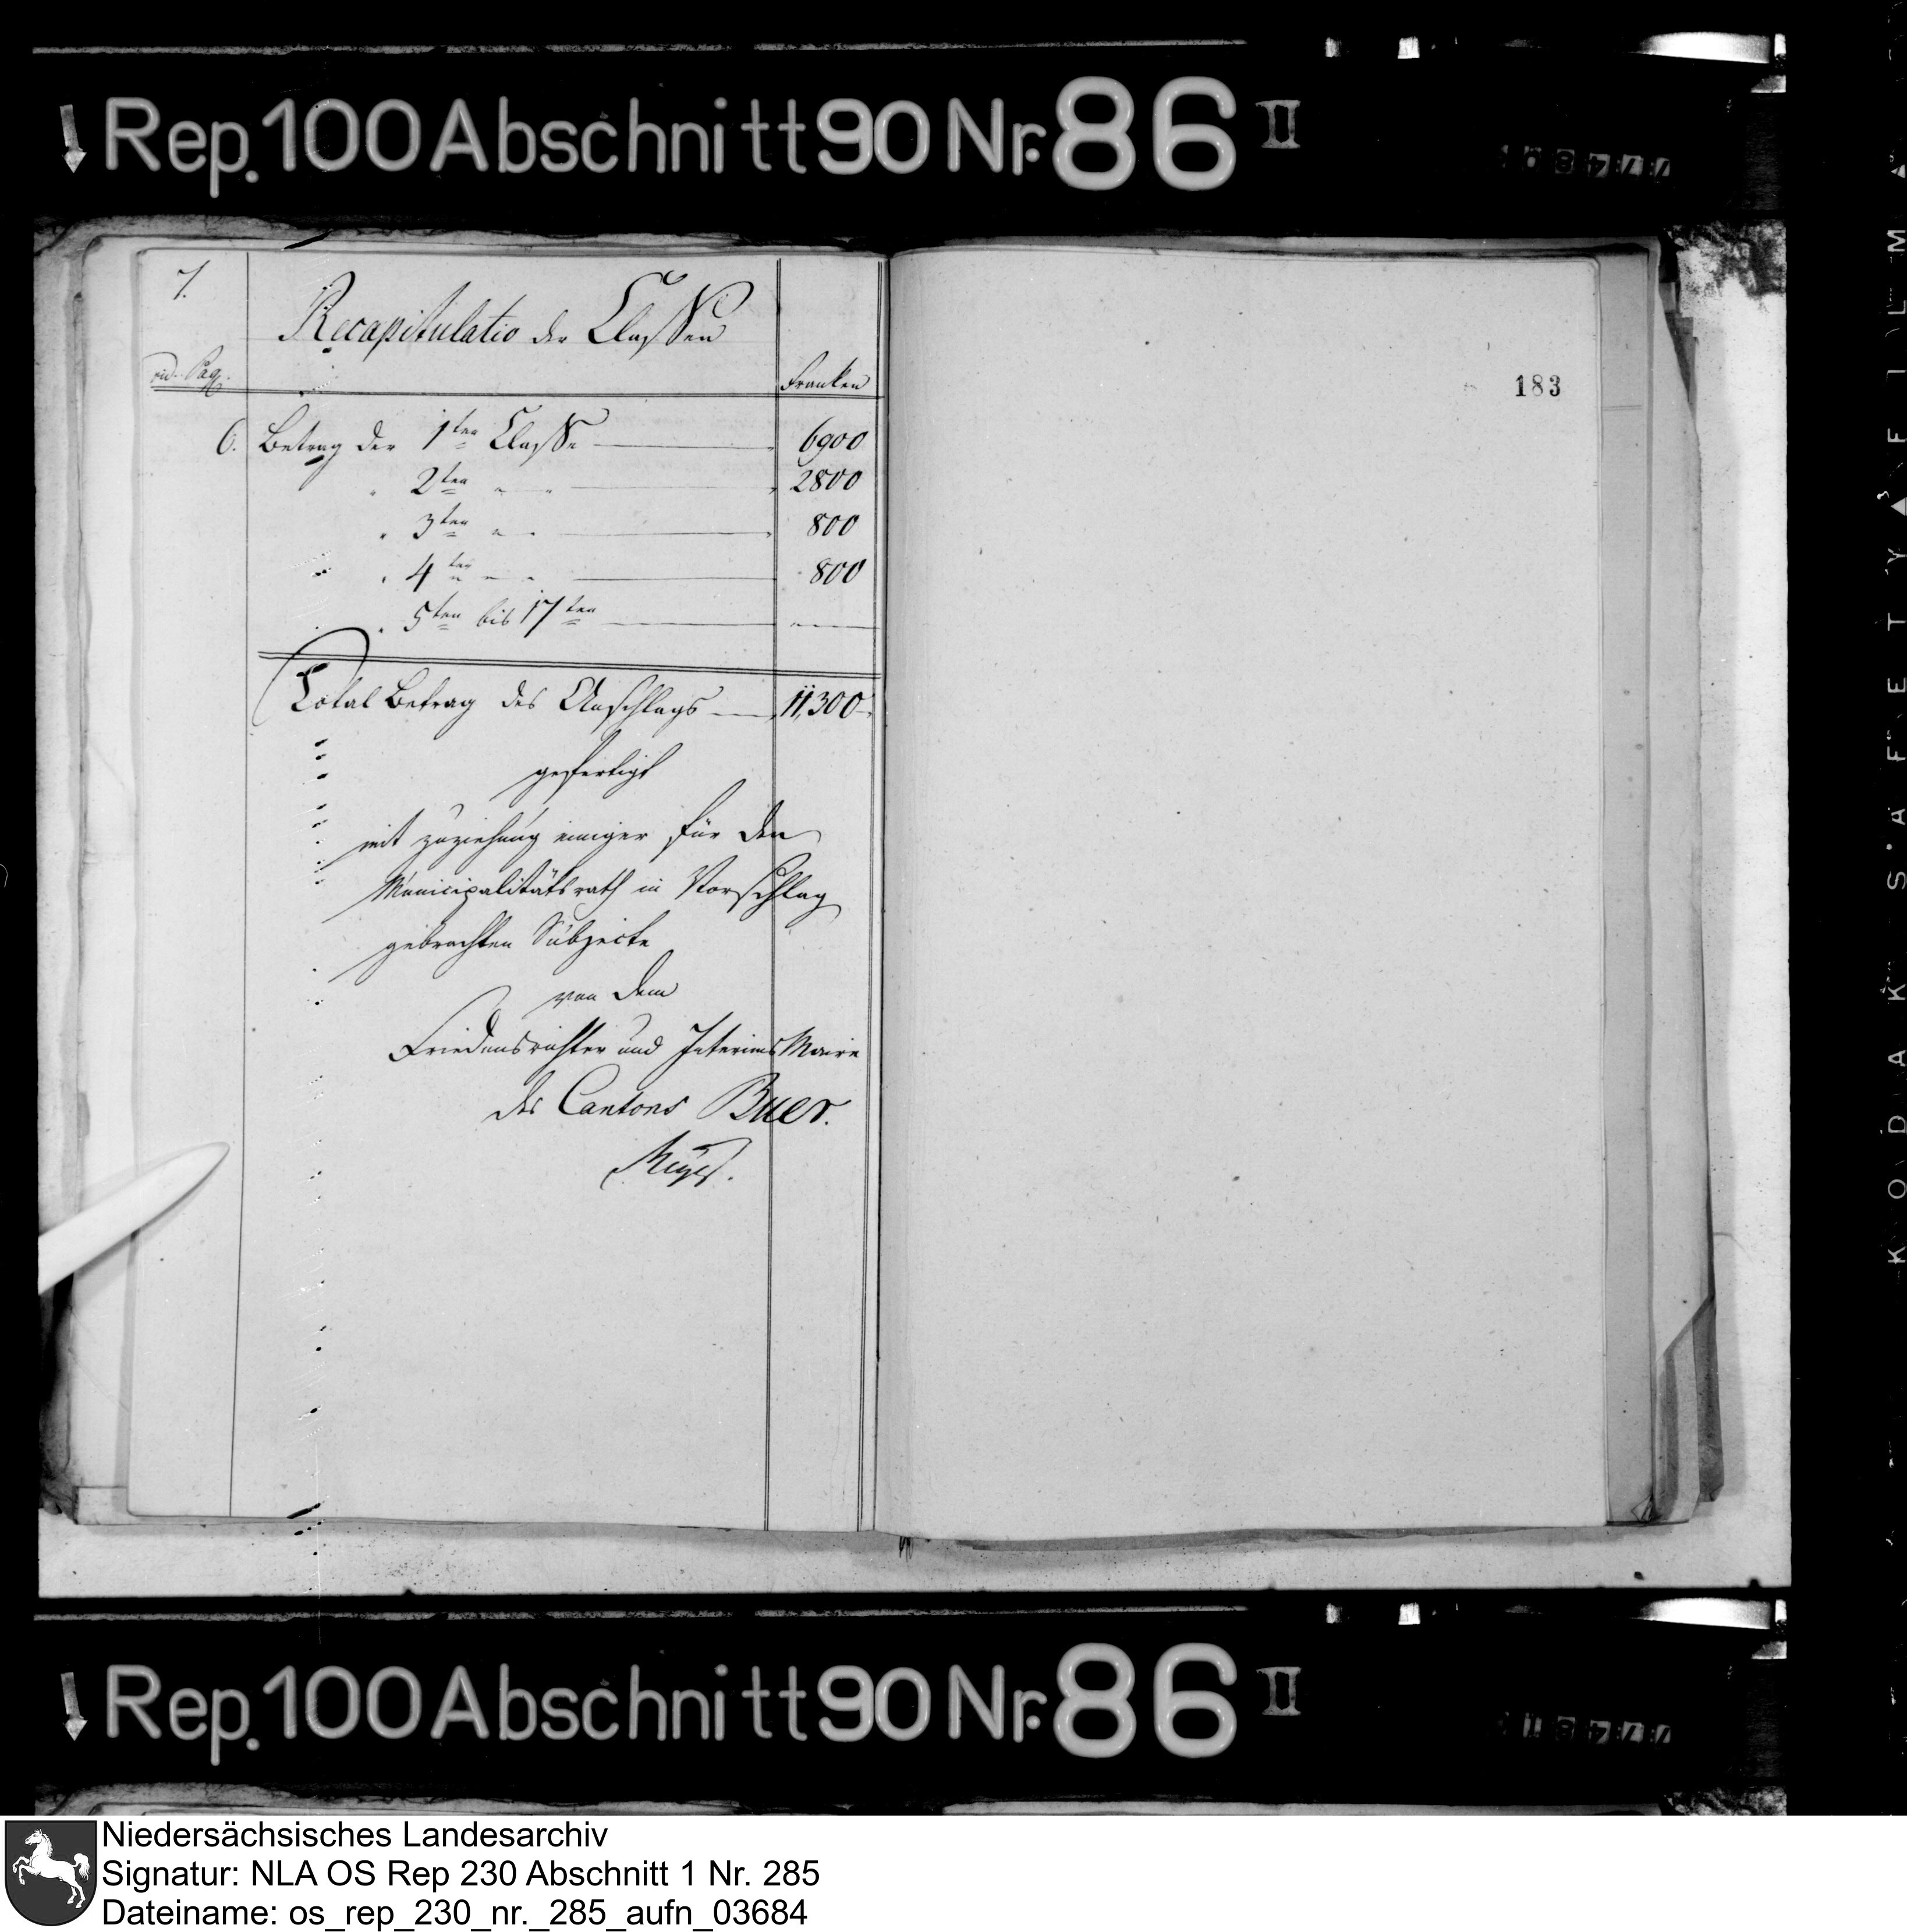 Rep. 100 Abschnitt 90 Nr. 86 II
7.
Recapitulatio der Classen
vid. Pag.
Franken
6. Betrag der 1ten Classe 6900
" 2ten " " 2800
" 3ten " " 800
" 4ten " " 800
" 5ten bis 17ten " "
Total Betrag des Anschlags 11,300
gefertigt
mit zuziehung einiger für den
Municipalitätsrath in Vorschlag
gebrachten Subjecte
von dem
Friedensrichter und Interims Maire
des Cantons Buer.
183
Rep. 100 Abschnitt 90 Nr. 86 II
KODAK SAFETY FILM
Niedersächsisches Landesarchiv
Signatur: NLA OS Rep 230 Abschnitt 1 Nr. 285
Dateiname: os_rep_230_nr._285_aufn_03684